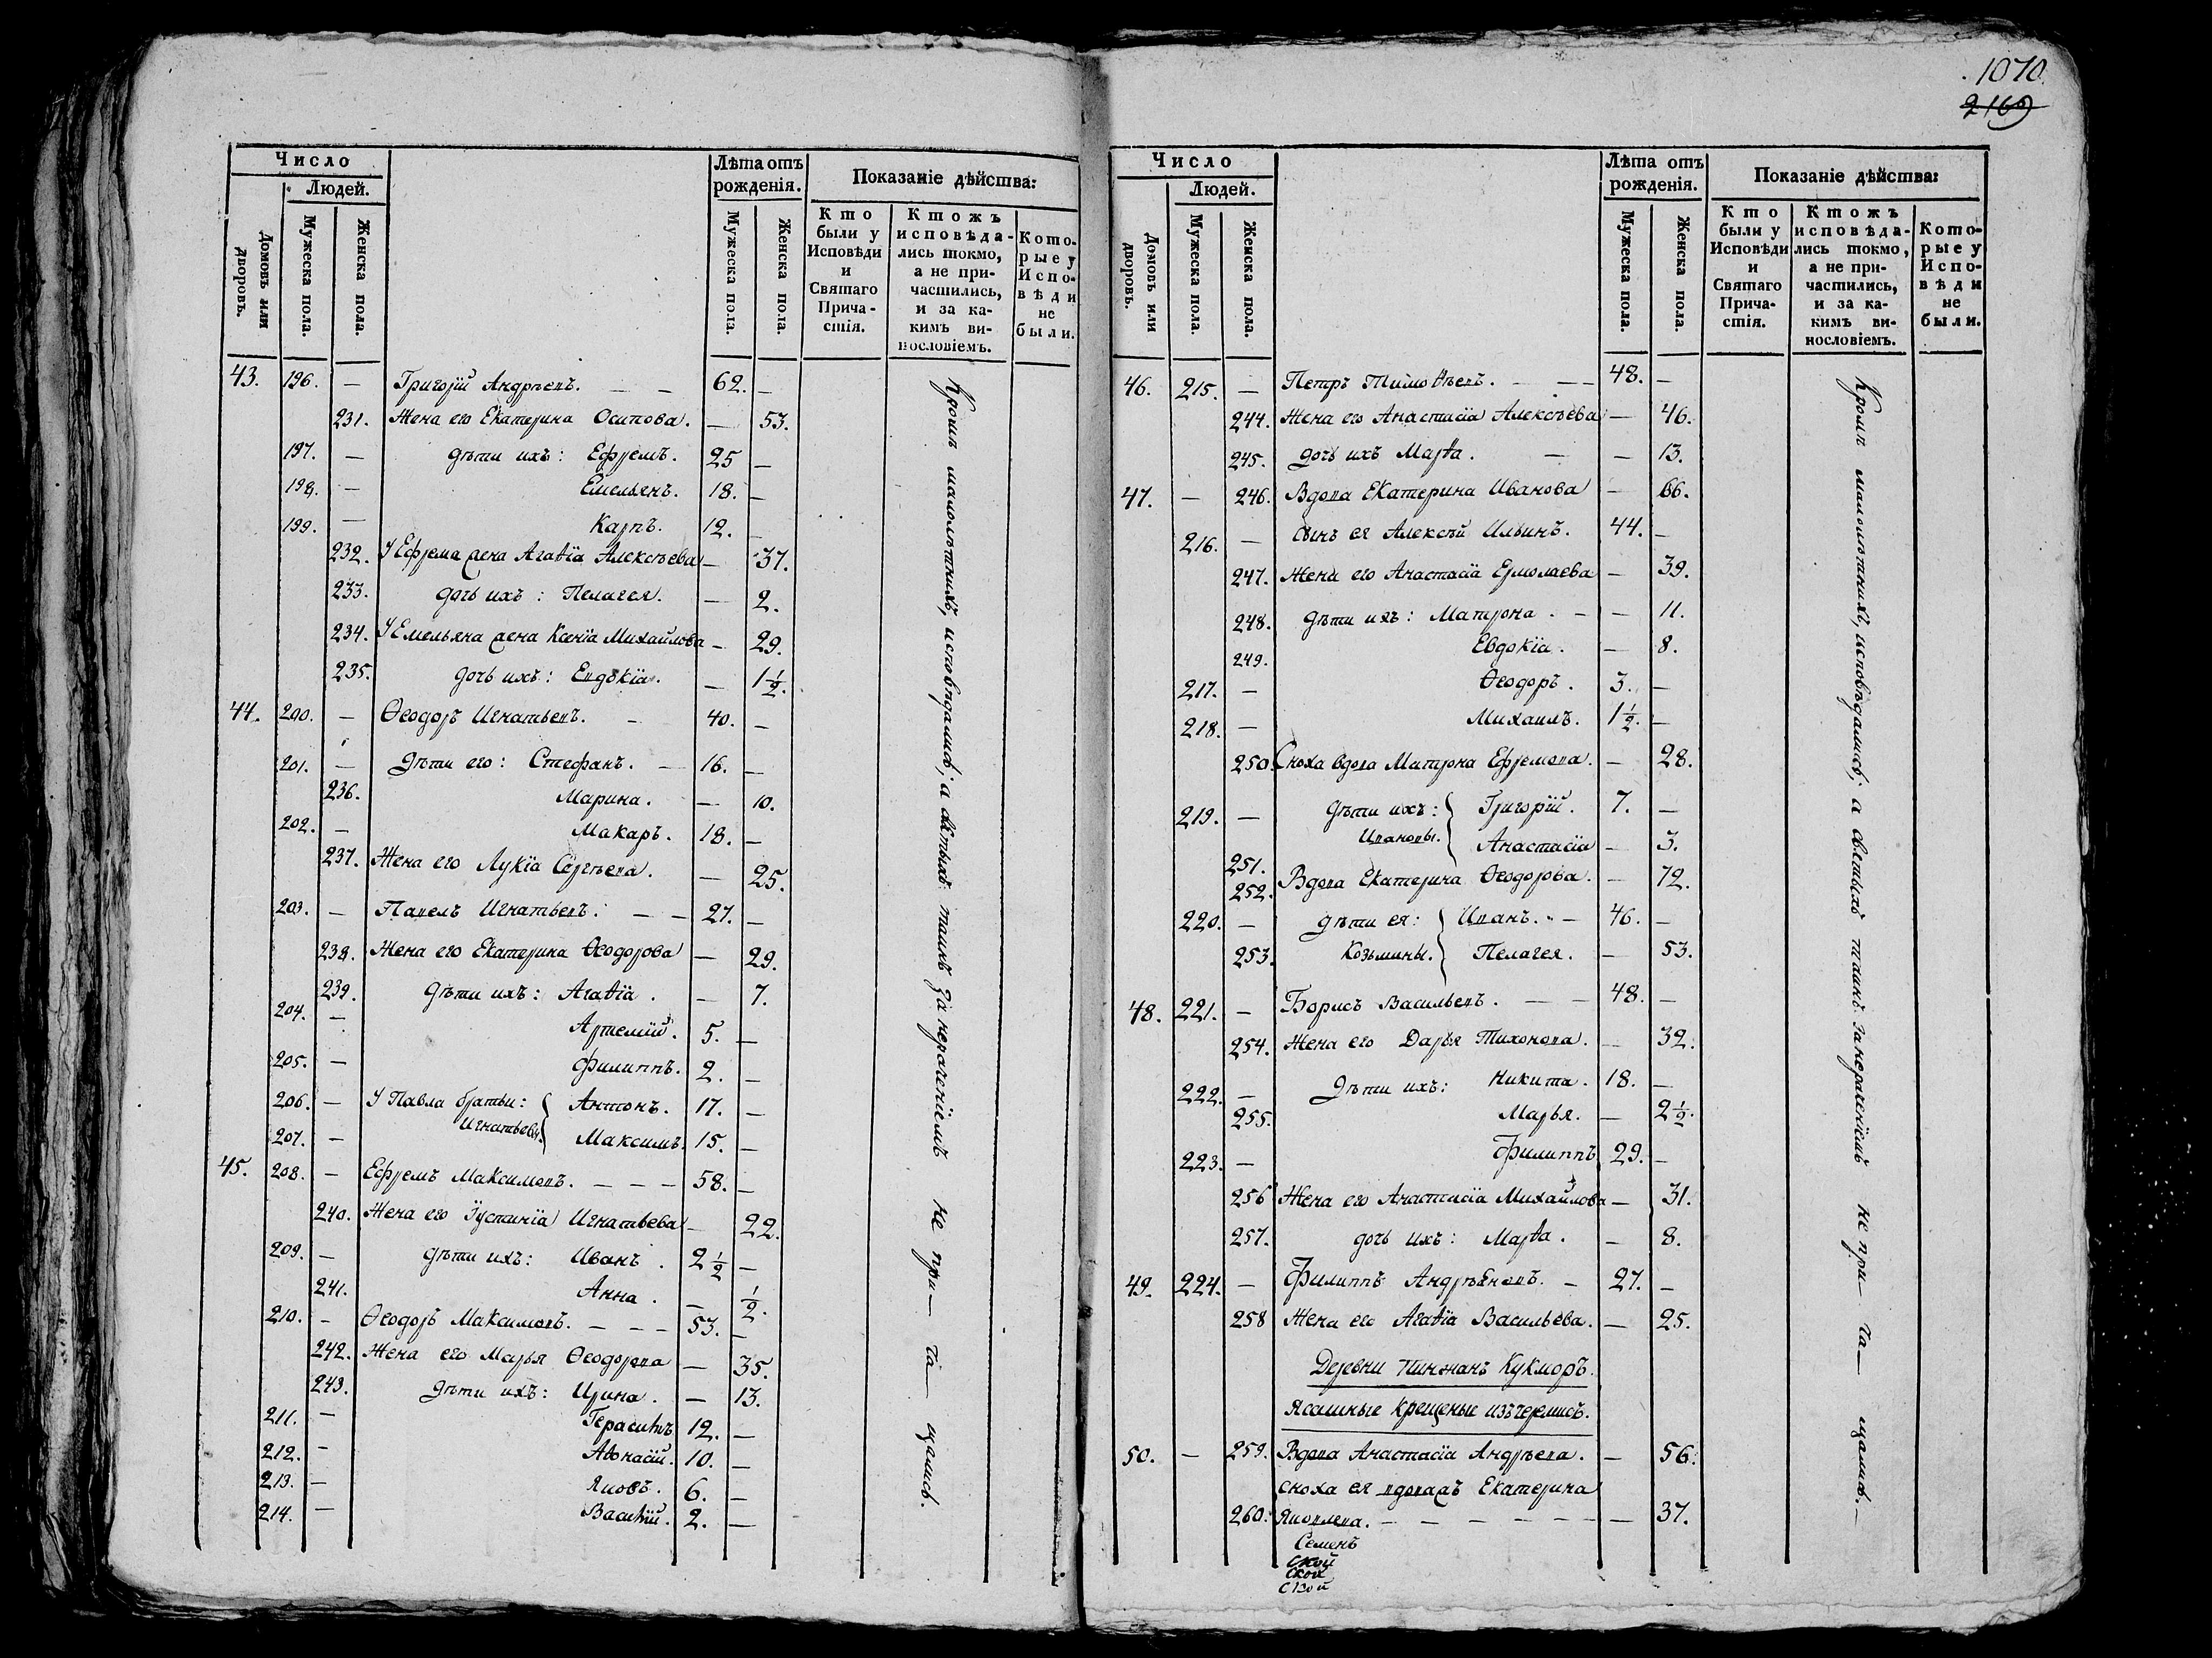 1070
2169
Число
Людей.
Домовъ или дворовъ.
Мужеска пола.
Женска пола.
Лѣта отъ рожденія.
Мужеска пола.
Женска пола.
Показаніе дѣйства:
Кто были у Исповѣди и Святаго Причастія.
Ктожъ исповѣдались токмо, а не причастились, и за какимъ винословіемъ.
Которые у Исповѣди не были.
43. 196. — Григорій Андреевъ. — — 62. —
231. Жена его Екатерина Осипова. — 53.
197. — дѣти ихъ: Ефремъ. 25 —
198. — Емельянъ. 18. —
199. — Карпъ. 12. —
232. У Ефрема жена Агаѳія Алексѣева — 37.
233. дочь ихъ: Пелагея. — 2.
234. У Емельяна жена Ксенія Михайлова — 29.
235. дочь ихъ: Евдокія. — 1½.
44. 200. — Ѳеодоръ Игнатьевъ. — 40. —
201. — Дѣти его: Стефанъ. — 16. —
236. Марина. — 10.
202. — Макаръ. 18. —
237. Жена его Лукія Сергѣева. — 25.
203. — Павелъ Игнатьевъ. — — 27. —
238. Жена его Екатерина Ѳеодорова — 29.
239. дѣти ихъ: Агаѳія. — 7.
204. — Артемій. 5. —
205. — Филиппъ. 2. —
206. — У Павла братьи: Антонъ. 17. —
Игнатьевы.
207. — Максимъ. 15. —
45. 208. — Ефремъ Максимовъ. — — — 58. —
240. Жена его Іустинія Игнатьева — 22.
209. — дѣти ихъ: Иванъ. 2½ —
241. Анна. — ½.
210. — Ѳеодоръ Максимовъ. — — — 53. —
242. Жена его Марья Ѳеодорова — 35.
243. дѣти ихъ: Ирина. — 13.
211. — Герасимъ 12. —
212. — Аѳонасій. 10. —
213. — Яковъ. 6. —
214. — Василій. 2. —
Кромѣ малолѣтнихъ, исповѣдались; а святыхъ таинъ за нерачениемъ не при— ча— щались.
Число
Людей.
Домовъ или дворовъ.
Мужеска пола.
Женска пола.
Лѣта отъ рожденія.
Мужеска пола.
Женска пола.
Показаніе дѣйства:
Кто были у Исповѣди и Святаго Причастія.
Ктожъ исповѣдались токмо, а не причастились, и за какимъ винословіемъ.
Которые у Исповѣди не были.
46. 215. — Петръ Тимоѳѣевъ. — — — 48. —
244. Жена его Анастасія Алексѣева — 46.
245. дочь ихъ Марѳа. — — 13.
47. — 246. Вдова Екатерина Иванова — 66.
216. — сынъ ея Алексѣй Ильинъ. 44. —
247. Жена его Анастасія Ермолаева — 39.
248. дѣти ихъ: Матрона. — — 11.
249. Евдокія. — 8.
217. — Ѳеодоръ. 3. —
218. — Михаилъ. 1½. —
250. Сноха вдова Матрона Ефремова. — 28.
219. — дѣти ихъ: Григорій. 7. —
Ивановы.
251. Анастасія — 3.
252. Вдова Екатерина Ѳеодорова. — 72.
220. — дѣти ея: Иванъ. — 46. —
253. Козьмины. Пелагея. — 53.
48. 221. — Борисъ Васильевъ. — — 48. —
254. Жена его Дарья Тихонова. — 32.
222. — дѣти ихъ: Никита. 18. —
255. Марья. — 2½.
223. — Филиппъ 29. —
256 Жена его Анастасія Михайлова — 31.
257. дочь ихъ: Марѳа. — 8.
49. 224. — Филиппъ Андрѣяновъ. — 27. —
258 Жена его Агаѳія Васильева. — 25.
Деревни Пинжанъ Кукморъ.
Ясашные крещеные изъ черемисъ.
50. — 259. Вдова Анастасія Андрѣева. — 56.
сноха ея вдова жъ Екатерина
260. Яковлева. — — — — — — — 37.
Семенъ
ской
ской
ской
Кромѣ малолѣтнихъ, исповѣдались; а святыхъ таинъ за нерачениемъ не при— ча— щались. —